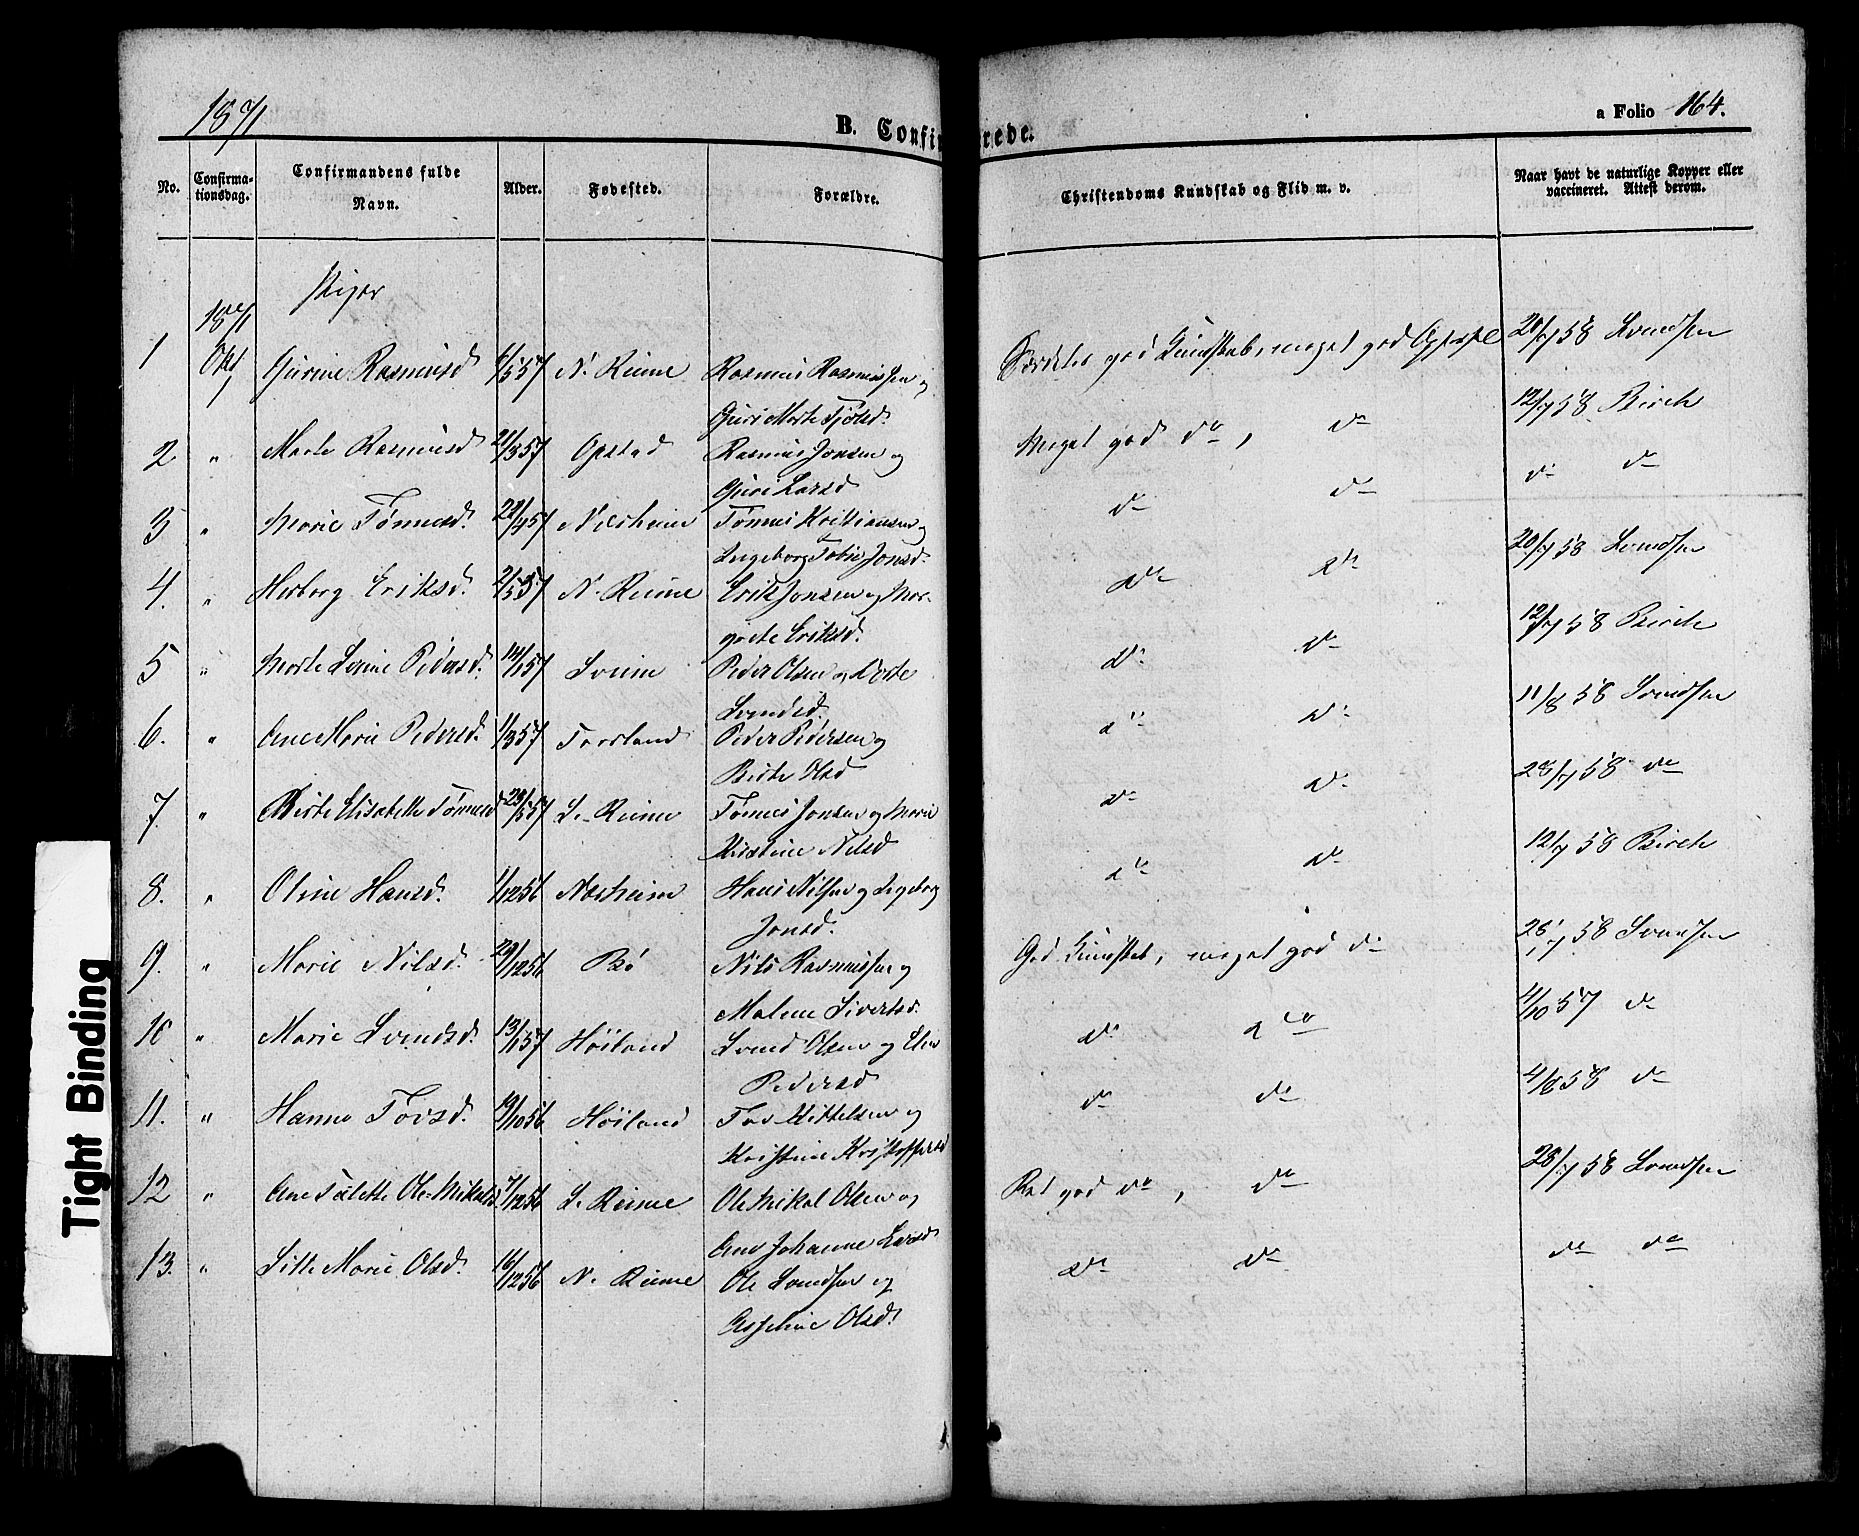 1871
B. Confir
rede.
a Folio 164.
No.
Confirma-
tionsdag.
Confirmandens fulde
Navn.
Alder.
Fødested.
Forældre.
Christendoms Kundskab og Flid m. v.
Naar havt de naturlige Kopper eller
vaccineret. Attest derom.
Piger
1871
1 Okt 1 Gurine Rasmusd 6/5 57 N. Reime Rasmus Rasmussen og Særdeles god Kundskab, meget god Opførsel 20/7 58 Svendsen
Guri Marte Tjølsd.
2 " Marte Rasmusd 21/3 57 Opstad Rasmus Jonsen og Meget god do, do 12/7 58 Birch
Guri Larsd
3 " Marie Tønnesd. 22/4 57 Næsheim Tønnes Kristiansen og do do do do
Ingeborg Tobie Jonsd.
4. " Herborg Eriksd. 2/5 57 N. Reime Erik Jonsen og Mar- do do 20/7 58 Svendsen
grete Eriksd.
5 " Marte Serine Pedersd. 14/1 57 Peder Olsen og do do 12/7 58 Birch
Svendsd.
6. " Ane Marie Pedersd. 1/3 57 Peder Pedersen og do do 11/8 58 Svendsen
Berte Olsd
7. " Berte Elisabeth Tønnesd 23/5 57 S. Reime Tønnes Jonsen og Marie do do 28/7 58 do
Kristine Nilsd
8. " Oline Hansd. 1/12 56 Næsheim Hans Nilsen og Ingeborg do do 12/7 58 Birch
Jonsd.
9. " Marie Nilsd. 29/12 56 Bø Nils Rasmussen og God Kundskab, meget god do 28/7 58 Svendsen
Malene Sivertsd.
10 " Marie Svendsd. 13/1 57 Høiland Svend Olsen og Elen do do 4/10 57 do
Pedersd
11. " Hanna Torsd. 19/10 56 Høiland Tor Kittelsen og do do 4/6 58 do
Kristine Kristoffersd
12 " Ane Salette Ole-Mikalsd. 7/12 56 S. Reime Ole Mikal Olsen og Ret god do, do 28/7 58 Svendsen
Ane Johanne Larsd
13. " Sille Marie Olsd. 16/12 56 N. Reime Ole Svendsen og do do do do
Asseline Olsd.
Tight Binding